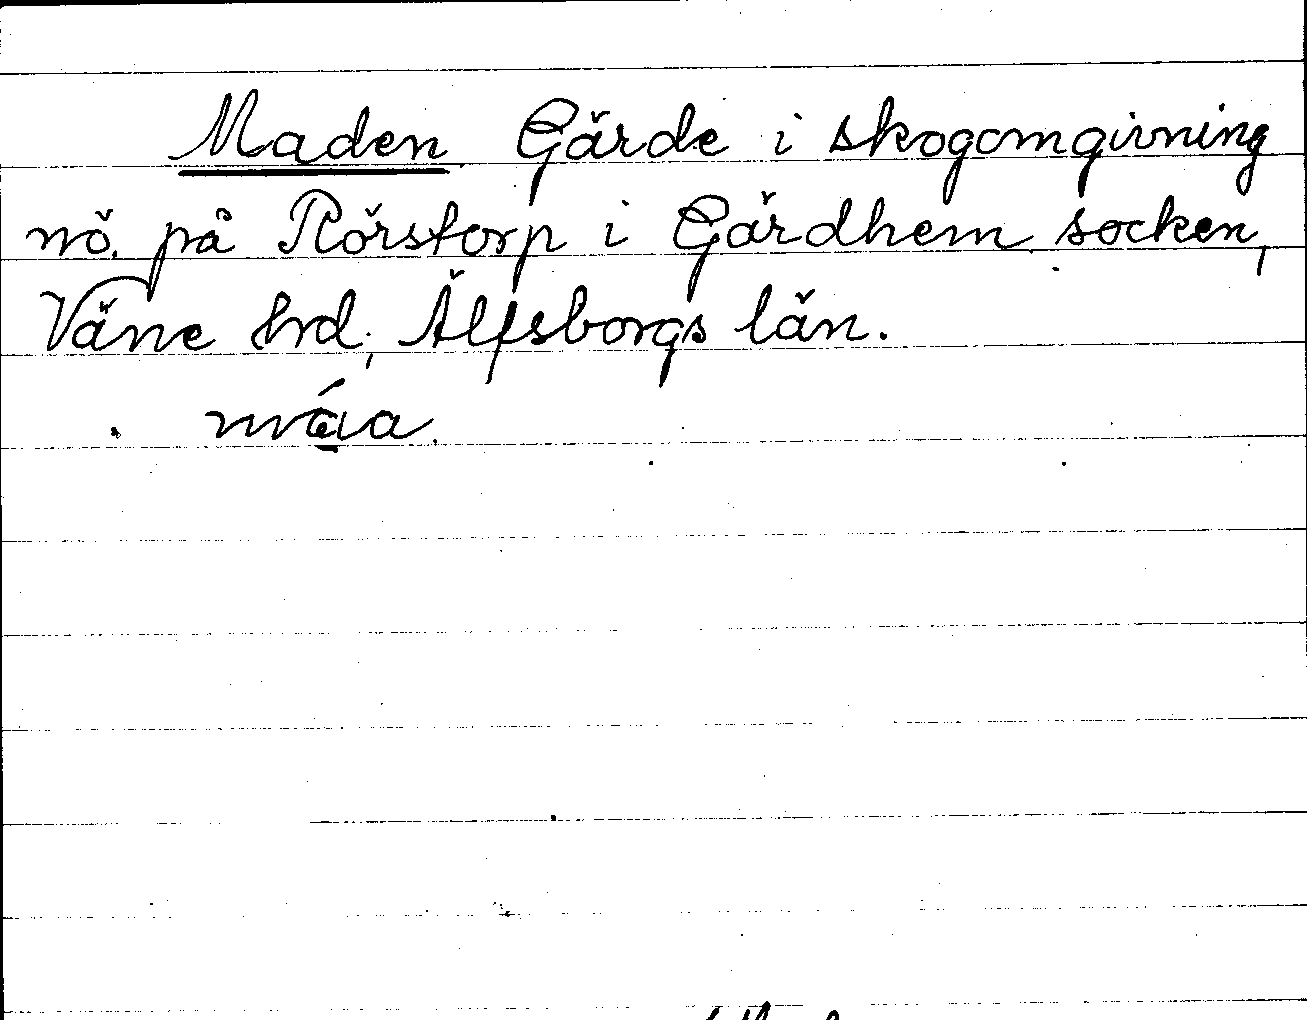 Maden. Gärde i skogomgivning
nö. på Rörstorp i Gärdhem socken,
Väne hrd, Älfsborgs län.